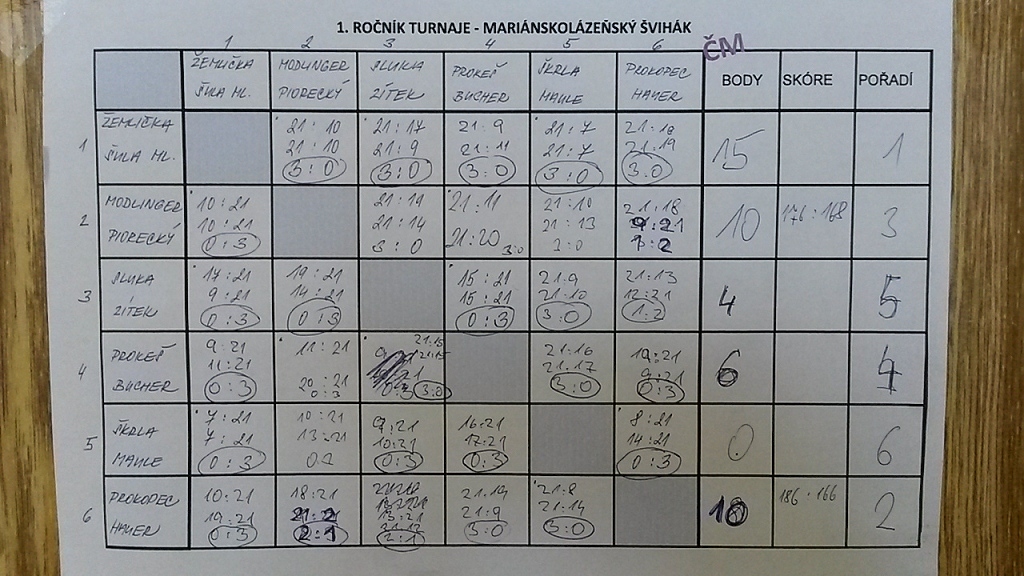 1. ROČNÍK TURNAJE - MARIÁNSKOLÁZEŇSKÝ ŠVIHÁK
1 2 3 4 5 6 ČM
ŽEMLIČKA MODLINGER SLUKA PROKEŠ ŠKRLA PROKOPEC BODY SKÓRE POŘADÍ
ŠULA ML. PIORECKÝ ZÍTEK BUCHER MAULE HAUER
ŽEMLIČKA 21:10 21:17 21:9 21:7 21:18
1 ŠULA ML. 21:10 21:9 21:11 21:7 21:19 15 1
3:0 3:0 3:0 3:0 3:0
MODLINGER 10:21 21:19 21:11 21:10 21:18
2 PIORECKÝ 10:21 21:14 21:20 21:13 9:21 10 176:168 3
0:3 3:0 3:0 3:0 1:2
SLUKA 17:21 19:21 15:21 21:9 21:13
3 ZÍTEK 9:21 14:21 15:21 21:10 12:21 4 5
0:3 0:3 0:3 3:0 1:2
PROKEŠ 9:21 11:21 21:15 21:16 19:21
4 BUCHER 11:21 20:21 21:15 21:17 9:21 6 4
0:3 0:3 0:3 3:0 3:0 0:3
ŠKRLA 7:21 10:21 9:21 16:21 8:21
5 MAULE 7:21 13:21 10:21 17:21 14:21 0 6
0:3 0:3 0:3 0:3
PROKOPEC 10:21 18:21 13:21 21:19 21:8
6 HAUER 19:21 21:12 21:9 21:14 10 186:166 2
0:3 2:1 2:1 3:0 3:0